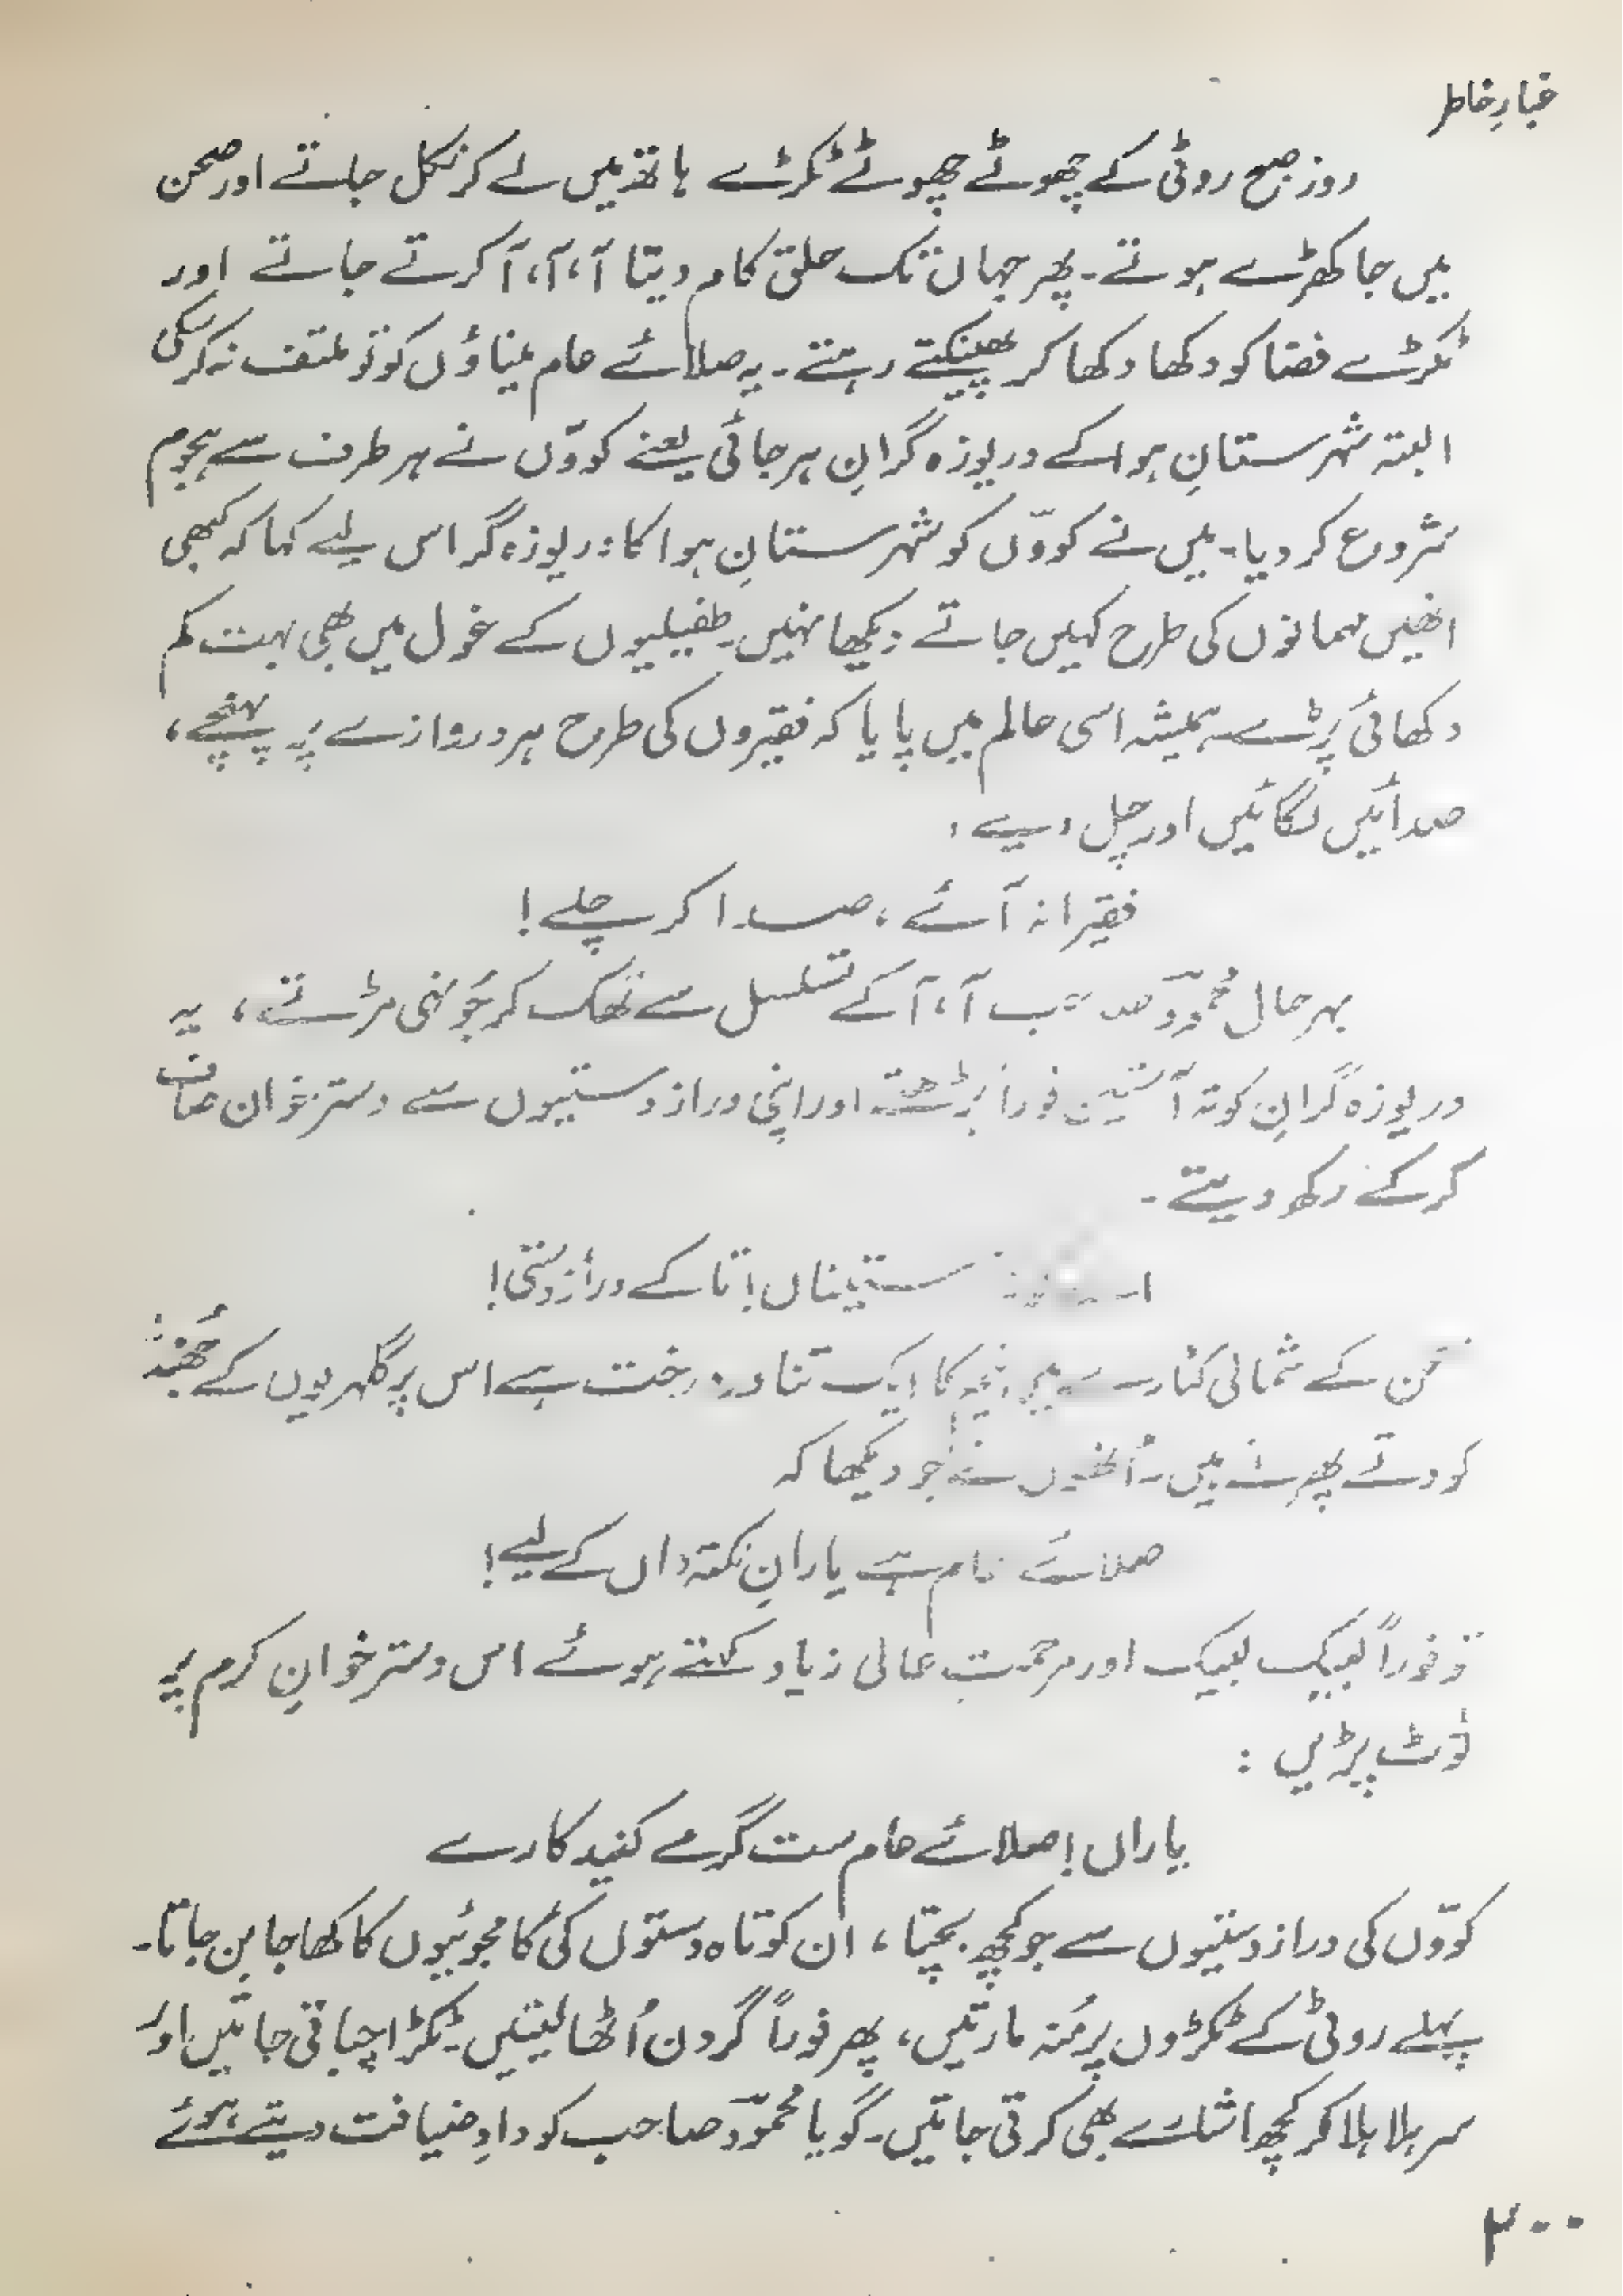 غبارِ خاطر
روز صبح روٹی کے چھوٹے چھوٹے ٹکڑے ہاتھ میں لے کر نکل جاتے اور صحن
میں جا کھڑے ہوتے۔ پھر جہاں تک حلق کام دیتا آ، آ، آ کرتے جاتے اور
ٹکڑے فضا کو دکھا دکھا کر پھینکتے رہتے۔ یہ صلائے عام میناؤں کو تو ملتفت نہ کر سکی
البتہ شہرستانِ ہوا کے دریوزہ گرانِ ہرجائی یعنے کوّوں نے ہر طرف سے ہجوم
شروع کر دیا۔ میں نے کوّوں کو شہرستانِ ہوا کا دریوزہ گر اس لیے کہا کہ کبھی
انھیں مہمانوں کی طرح کہیں جاتے دیکھا نہیں۔ طفیلیوں کے غول میں بھی بہت کم
دکھائی پڑے۔ ہمیشہ اسی عالم میں پایا کہ فقیروں کی طرح ہر دروازے پر پہنچے،
صدائیں لگائیں اور چل دیے،
فقیرانہ آئے، صدا کر چلے!
بہرحال محمود صاحب آ، آ کے تسلسل سے تھک کر جُونہی مڑتے، یہ
دریوزہ گرانِ کوتہ آستین فوراً بڑھتے اور اپنی دراز دستیوں سے دسترخوان صاف
کر کے رکھ دیتے۔
آستیناں! تا کے دراز دستی!
صحن کے شمالی کنارے میں نیم کا ایک تناور درخت ہے اس پر گلہریوں کے جھُنڈ
کودتے پھرتے ہیں۔ اُنھوں نے جو دیکھا کہ
صلائے عام ہے یارانِ نکتہ داں کے لیے!
تو فوراً لبیک لبیک اور مرحمتِ عالی زیاد کہتے ہوئے اس دسترخوانِ کرم پر
ٹوٹ پڑیں :
یاراں! صلائے عام ست گر مے کنید کارے
کوّوں کی دراز دستیوں سے جو کچھ بچتا، ان کوتاہ دستوں کی کامجوئیوں کا کھاجا بن جاتا۔
پہلے روٹی کے ٹکڑوں پر مُنہ مارتیں، پھر فوراً گردن اُٹھا لیتیں۔ ٹکڑا چباتی جاتیں اور
سر ہلا ہلا کر کچھ اشارے بھی کرتی جاتیں۔ گویا محمود صاحب کو دادِ ضیافت دیتے ہوئے
۲۰۰